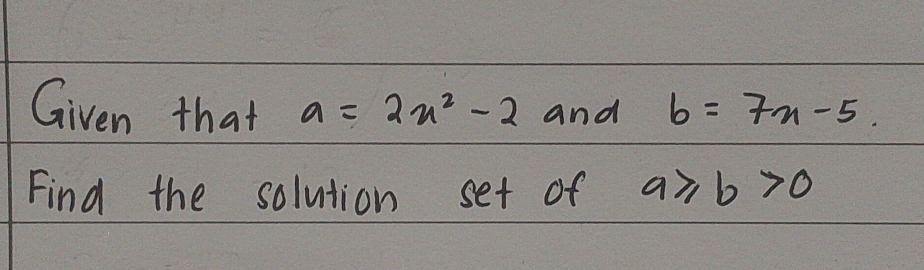 Given that a = 2x² - 2 and b = 7x - 5.
Find the solution set of a ⩾ b > 0